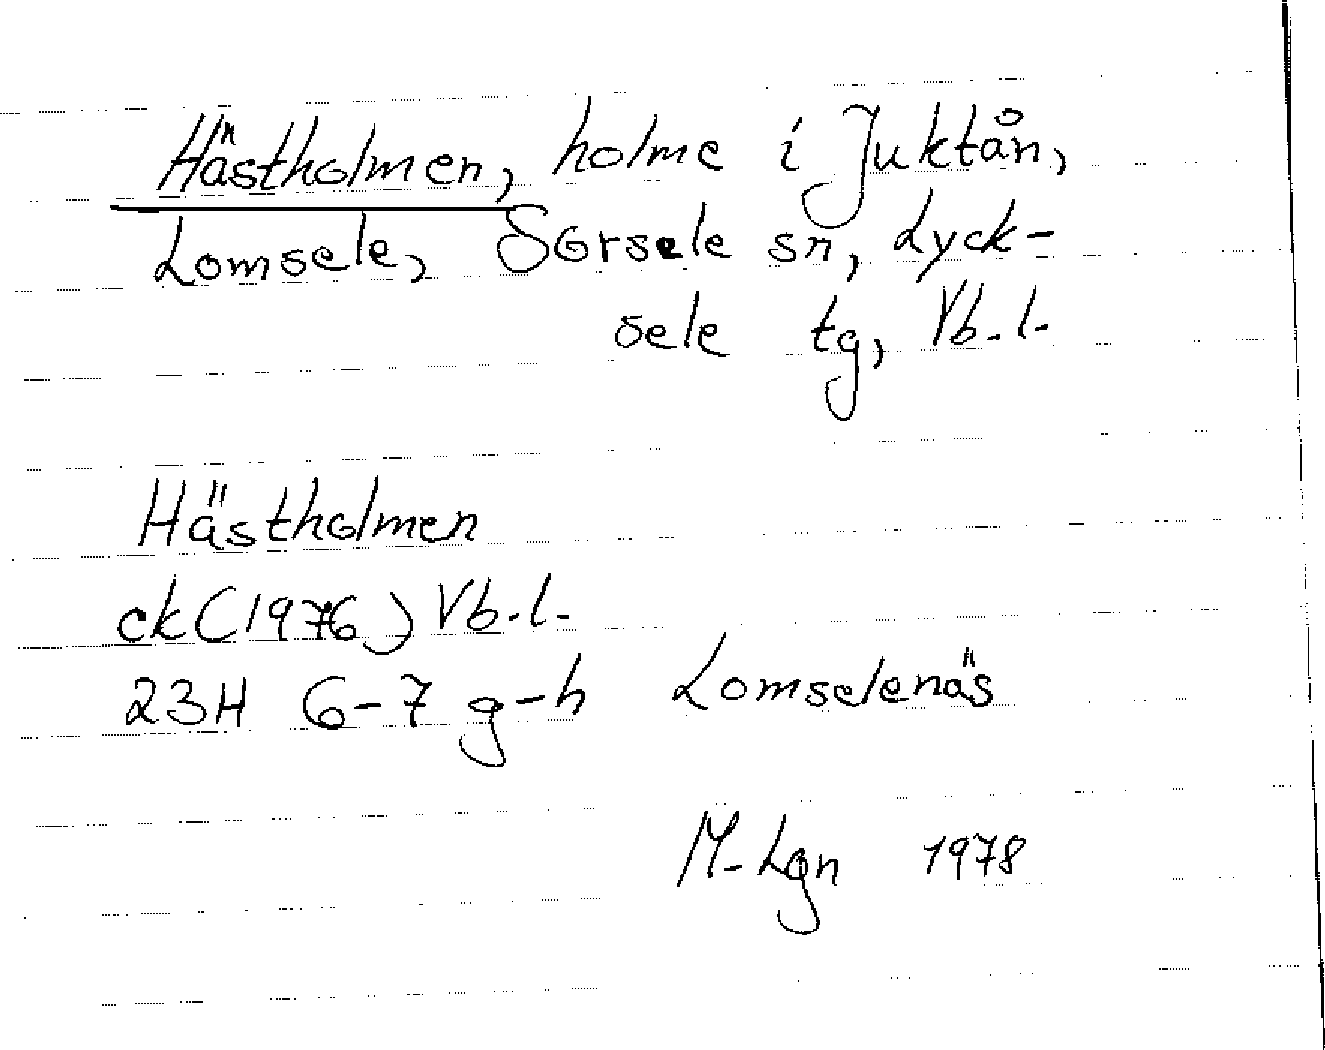 Hästholmen, holme i Juktån,
Lomsele, Sorsele sn, Lyck-
sele tg, Vb.l.
Hästholmen
ek (1976) Vb.l.
23H 6-7 g-h Lomselenäs
M-Lgn 1978